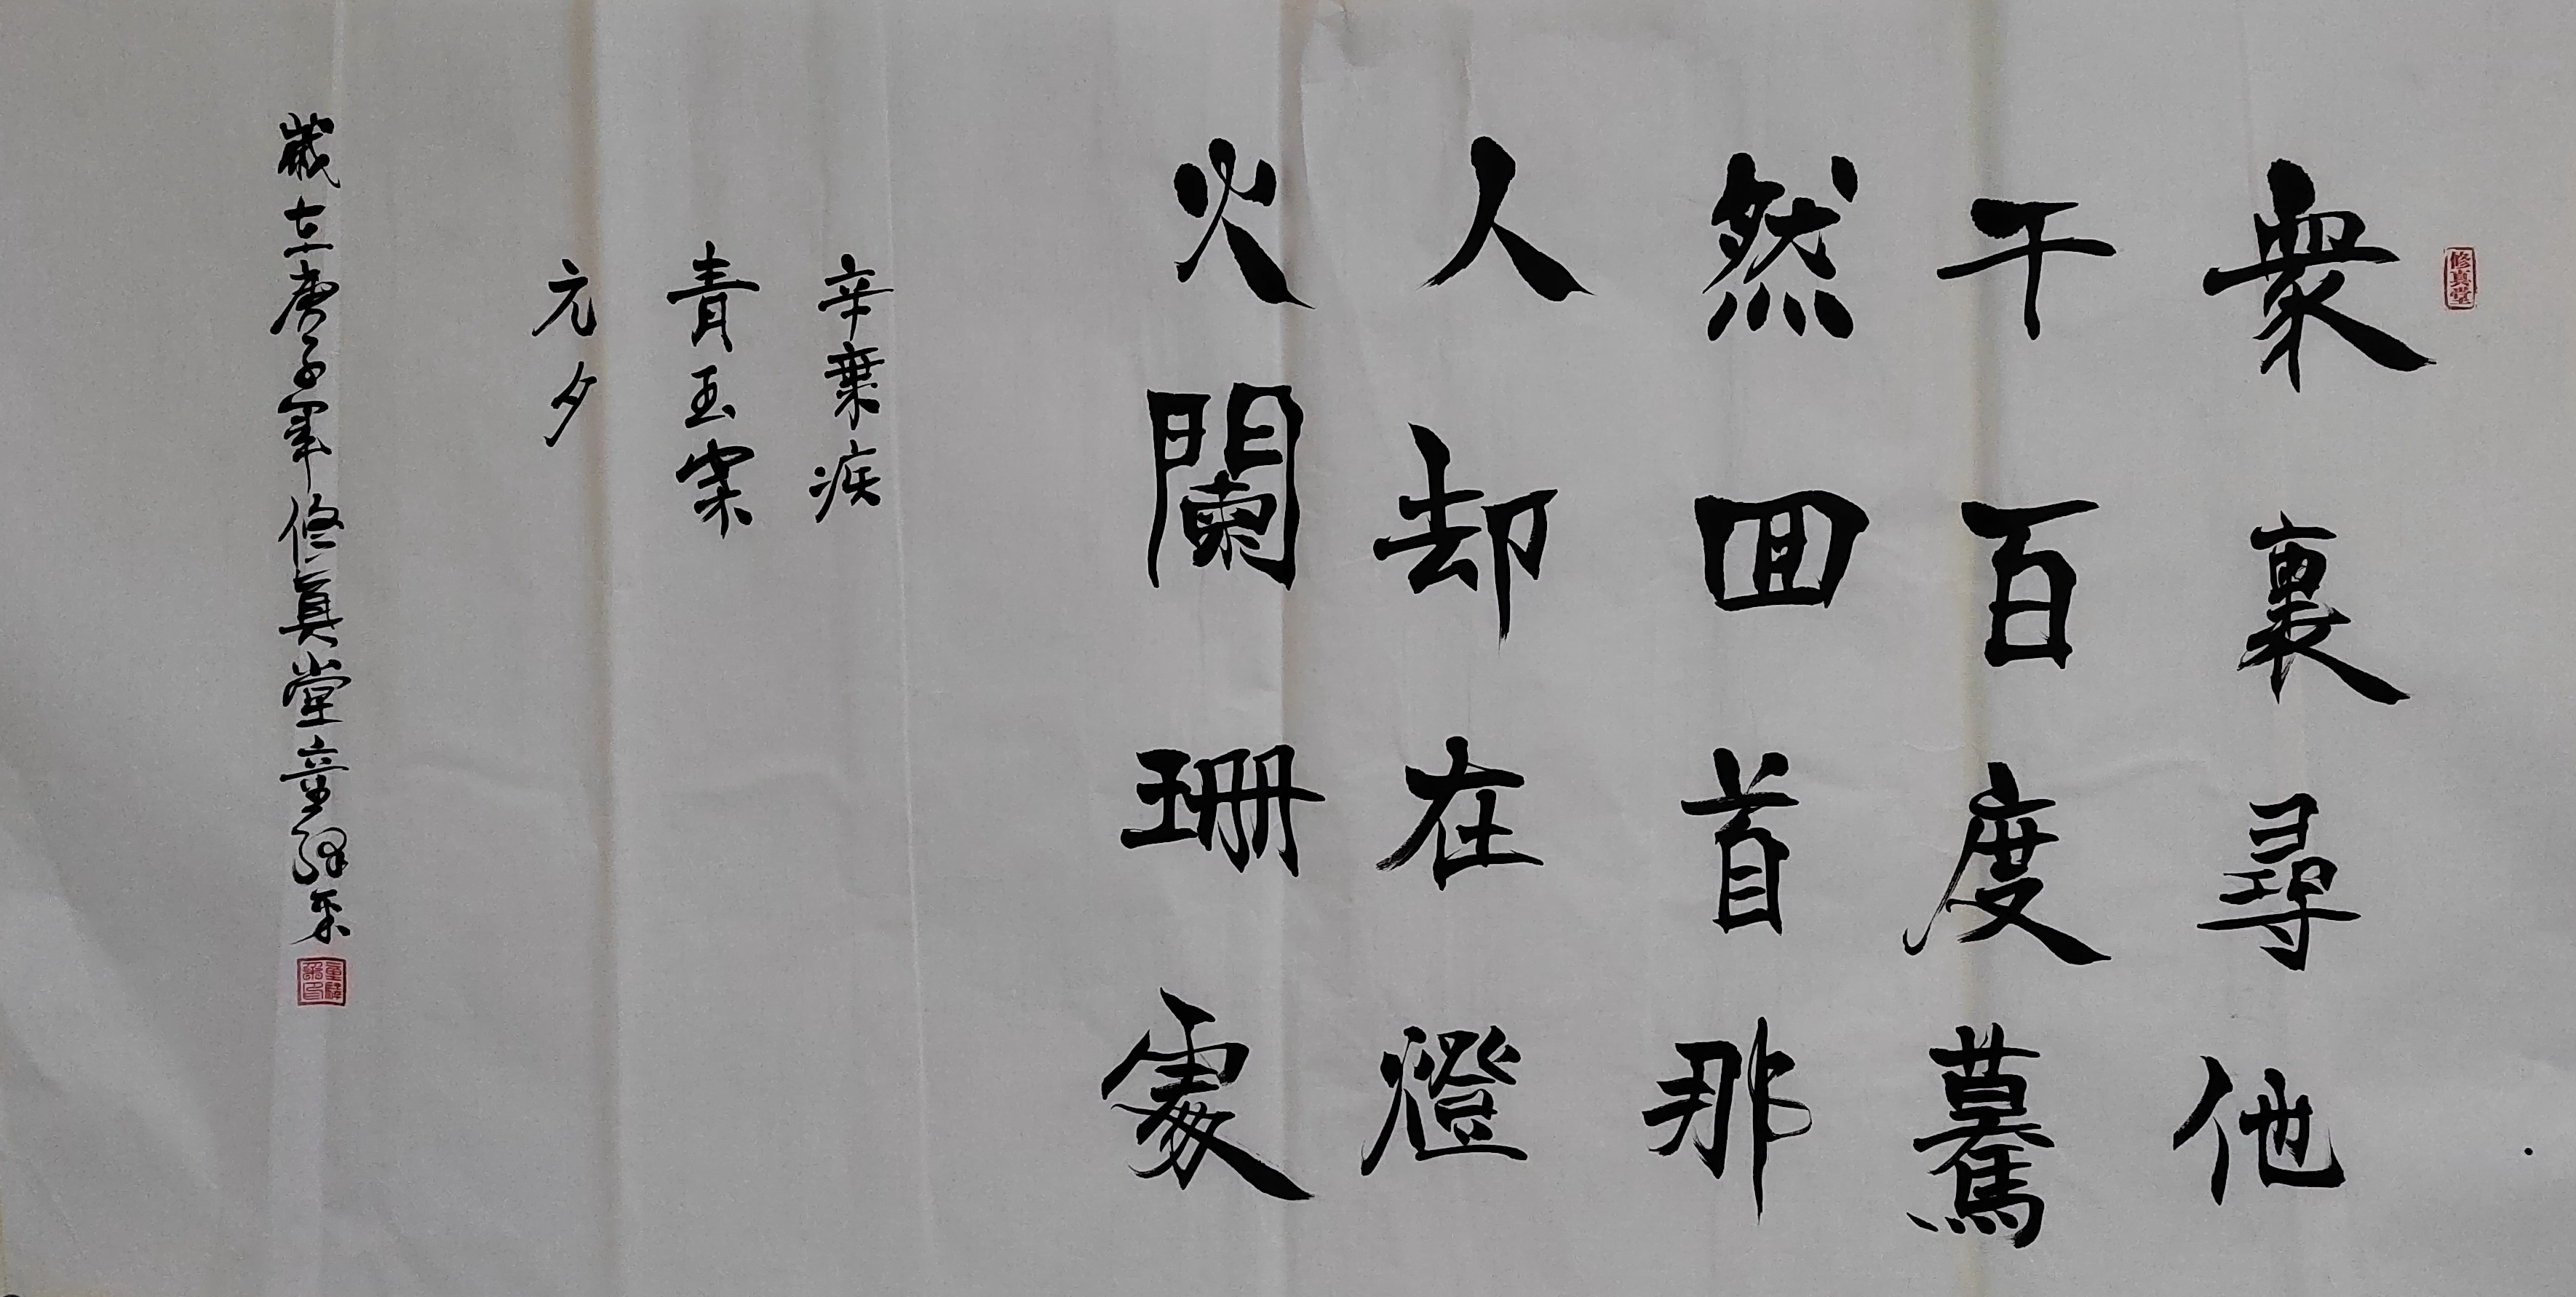 修真堂
衆裏尋他
千百度驀
然回首那
人却在燈
火闌珊處
辛棄疾
青玉案
元夕
歲在庚子年修真堂童